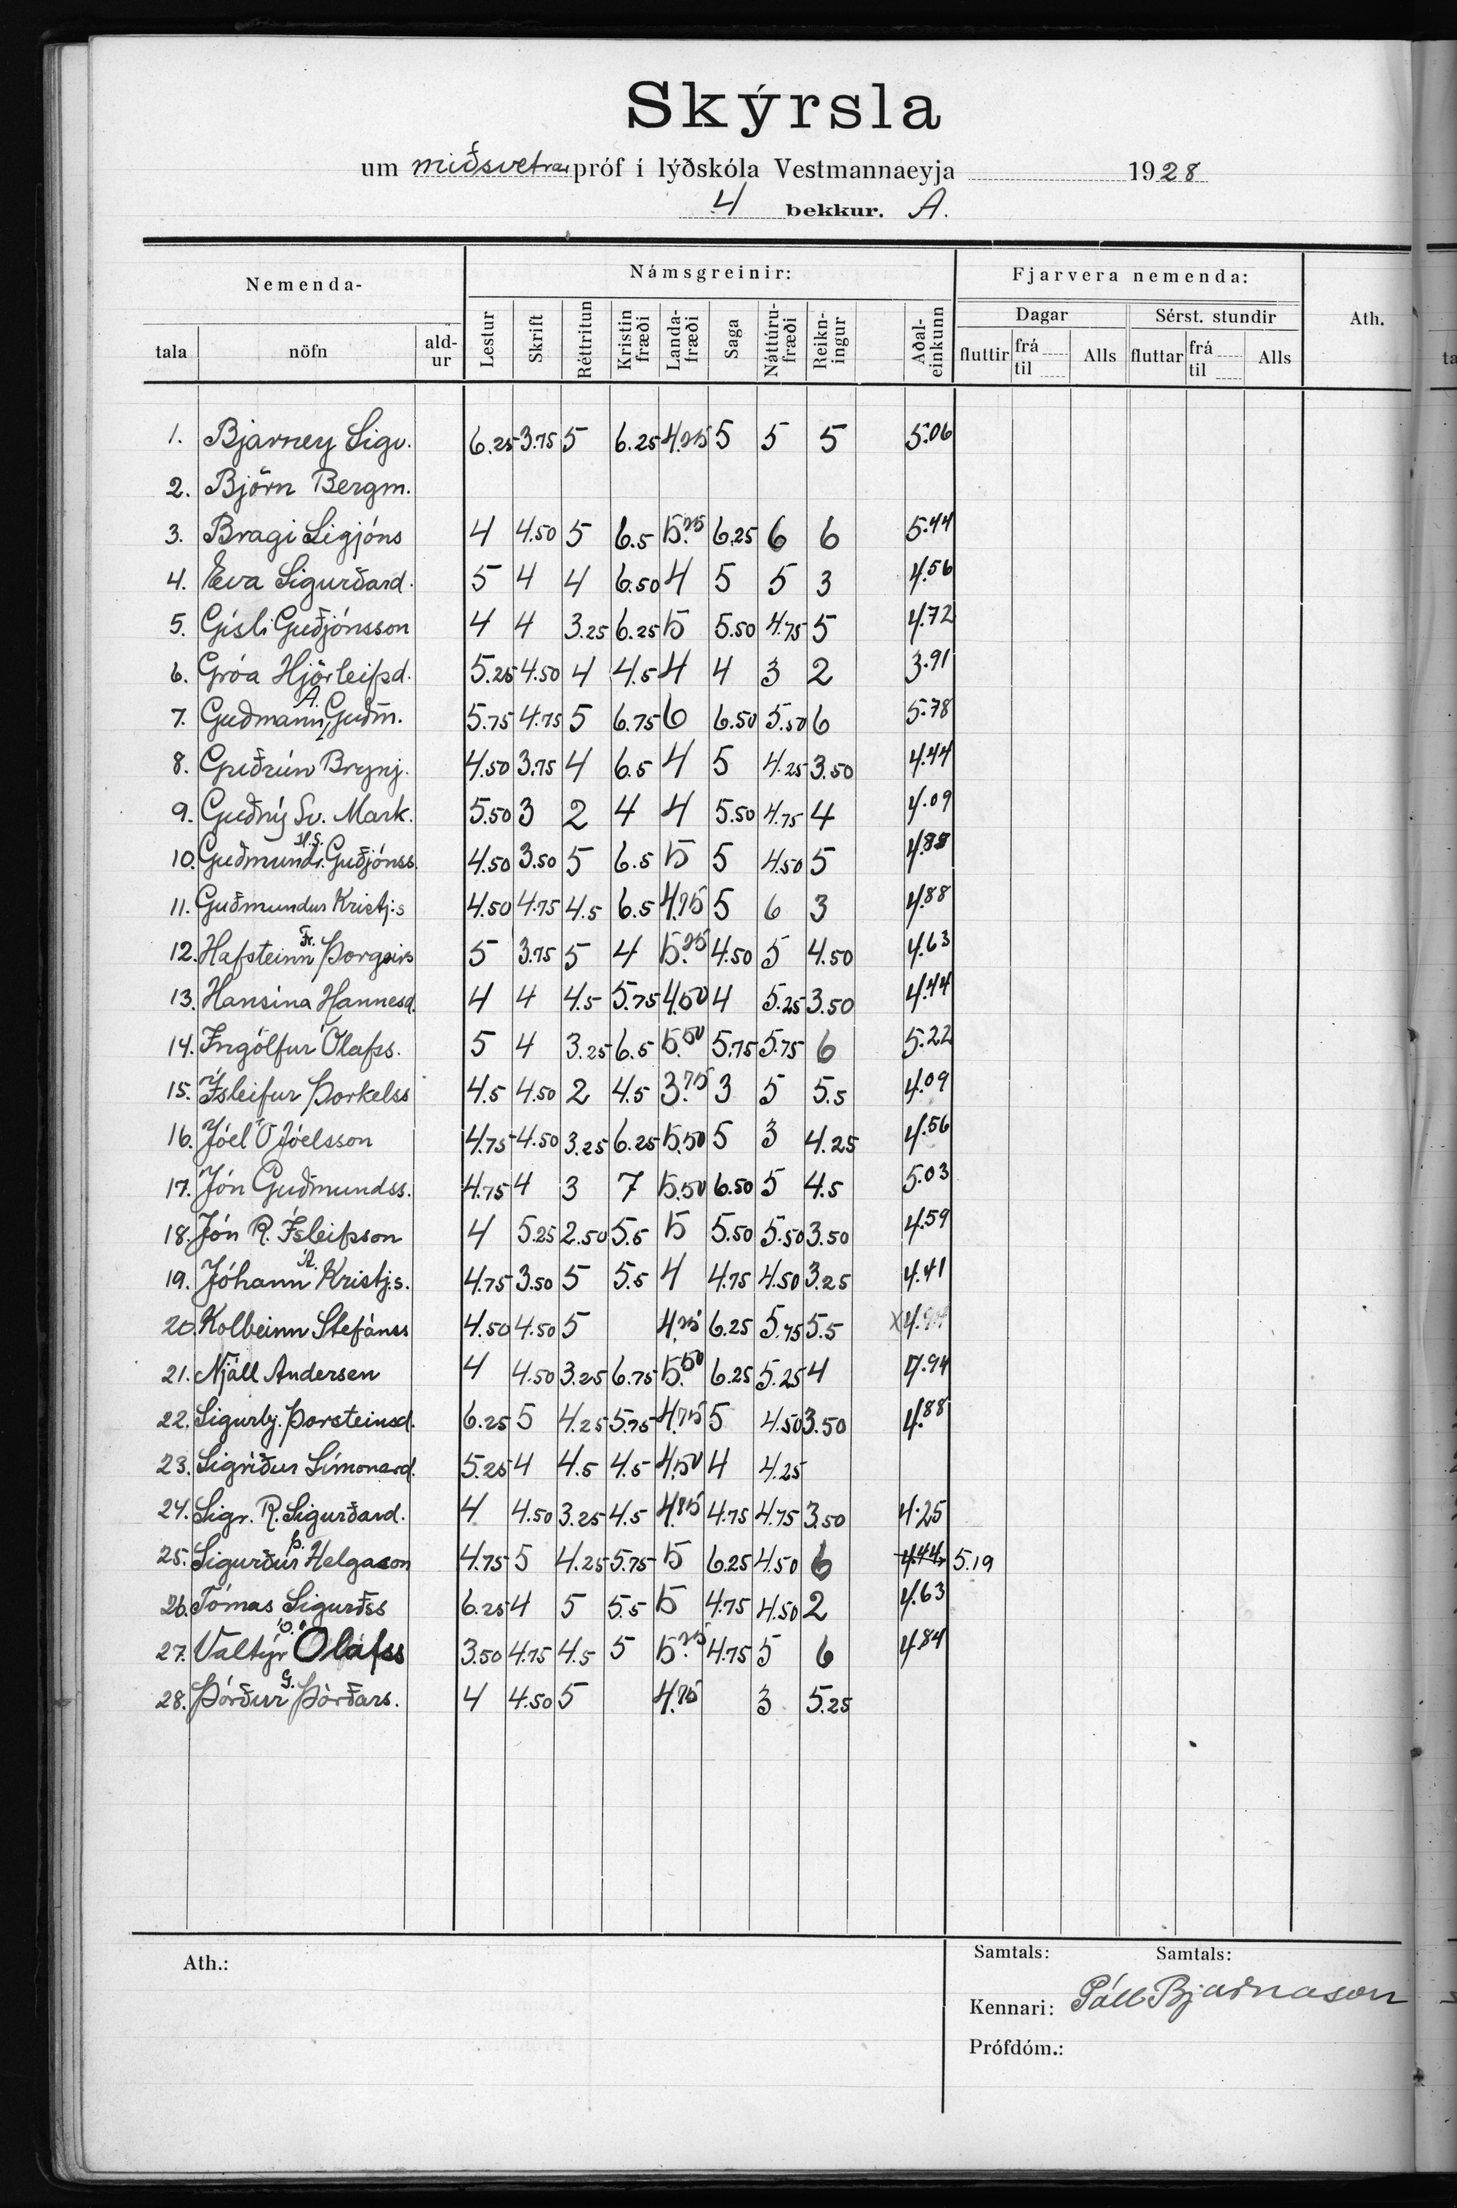 Skýrsla
um miðsvetrar próf í lýðskóla Vestmannaeyja 1928
4 bekkur. A.
Nemenda-
Námsgreinir:
Fjarvera nemenda:
Ath.
Dagar
Sérst. stundir
tala nöfn ald-ur Lestur Skrift Réttritun Kristin fræði Landa-fræði Saga Náttúru-fræði Reikn-ingur Aðal-einkunn fluttir frá til Alls fluttar frá til Alls
1. Bjarney Sigv. 6.25 3.75 5 6.25 4.25 5 5 5 5.06
2. Björn Bergm.
3. Bragi Sigjóns 4 4.50 5 6.5 5.25 6.25 6 6 5.44
4. Eva Sigurðard. 5 4 4 6.50 4 5 5 3 4.56
5. Gísli Guðjónsson 4 4 3.25 6.25 5 5.50 4.75 5 4.72
6. Gróa Hjörleifsd. 5.25 4.50 4 4.5 4 4 3 2 3.91
7. Guðmann A. Guðm. 5.75 4.75 5 6.75 6 6.50 5.50 6 5.78
8. Guðrún Brynj. 4.50 3.75 4 6.5 4 5 4.25 3.50 4.44
9. Guðný Sv. Mark. 5.50 3 2 4 4 5.50 4.75 4 4.09
10. Guðmund. Guðjónss. 4.50 3.50 5 6.5 5 5 4.50 5 4.88
11. Guðmundur Kristj:s 4.50 4.75 4.5 6.5 4.75 5 6 3 4.88
12. Hafsteinn Fr. Þorgeirs 5 3.75 5 4 5.25 4.50 5 4.50 4.63
13. Hansína Hannesd. 4 4 4.5 5.75 4.50 4 5.25 3.50 4.44
14. Ingólfur Ólafss. 5 4 3.25 6.5 5.50 5.75 5.75 6 5.22
15. Ísleifur Þorkelss 4.5 4.50 2 4.5 3.75 3 5 5.5 4.09
16. Jóel Ó Jóelsson 4.75 4.50 3.25 6.25 5.50 5 3 4.25 4.56
17. Jón Guðmundss. 4.75 4 3 7 5.50 6.50 5 4.5 5.03
18. Jón R. Ísleifsson 4 5.25 2.50 5.5 5 5.50 5.50 3.50 4.59
19. Jóhann Á. Kristj.s. 4.75 3.50 5 5.5 4 4.75 4.50 3.25 4.41
20. Kolbeinn Stefánss 4.50 4.50 5 4.25 6.25 5.75 5.5 x
21. Njáll Andersen 4 4.50 3.25 6.75 5.50 6.25 5.25 4 4.94
22. Sigurbj. Þorsteinsd. 6.25 5 4.25 5.75 4.75 5 4.50 3.50 4.88
23. Sigríður Símonard. 5.25 4 4.5 4.5 4.50 4 4.25
24. Sigr. R. Sigurðard. 4 4.50 3.25 4.5 4.75 4.75 3.50 4.25
25. Sigurður Þ. Helgason 4.75 5 4.25 5.75 5 6.25 4.50 6 4.44 5.19
26. Tómas Sigurðss 6.25 4 5 5.5 5 4.75 4.50 2 4.63
27. Valtýr Ó. Ólafss 3.50 4.75 4.5 5 5.25 4.75 5 6 4.84
28. Þórður G. Þórðars. 4 4.50 5 4.75 3 5.25
Ath.:
Samtals: Samtals:
Kennari: Páll Bjarnason
Prófdóm.: